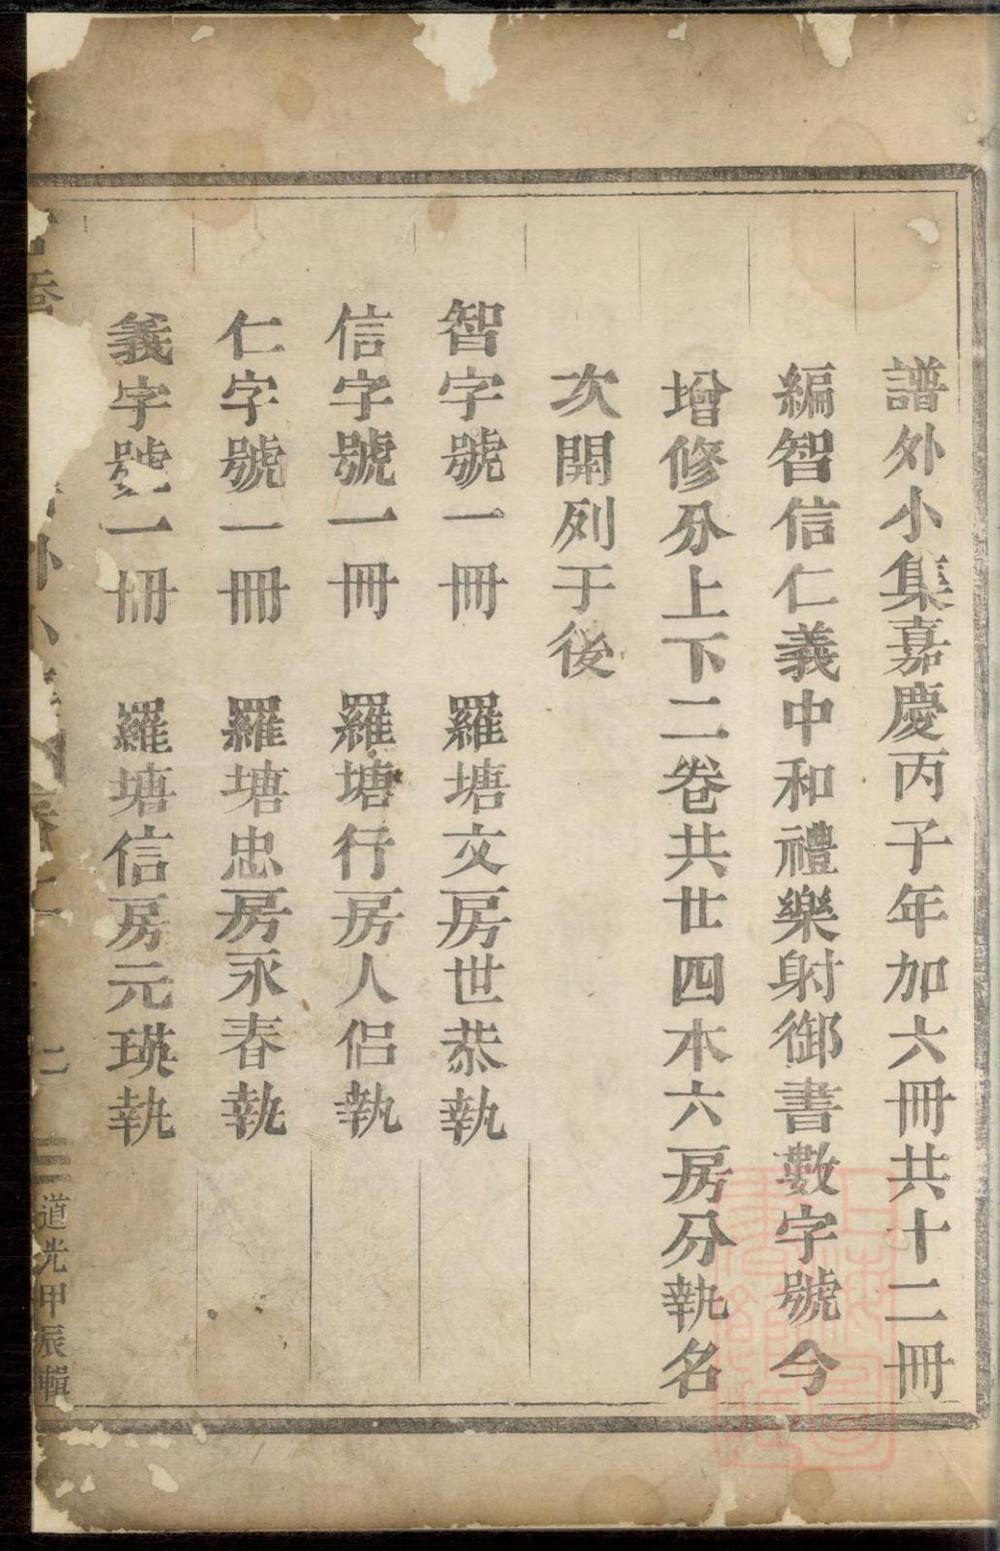 譜外小集嘉慶丙子年加六冊共十二冊
編智信仁義中和禮樂射御書數字號今
增修分上下二卷共廿四本六房分執名
次開列于後
智字號一冊　羅塘文房世恭執
信字號一冊　羅塘行房人侶執
仁字號一冊　羅塘忠房永春執
義字號一冊　羅塘信房元瑛執
外小集 卷二 道光甲辰輯